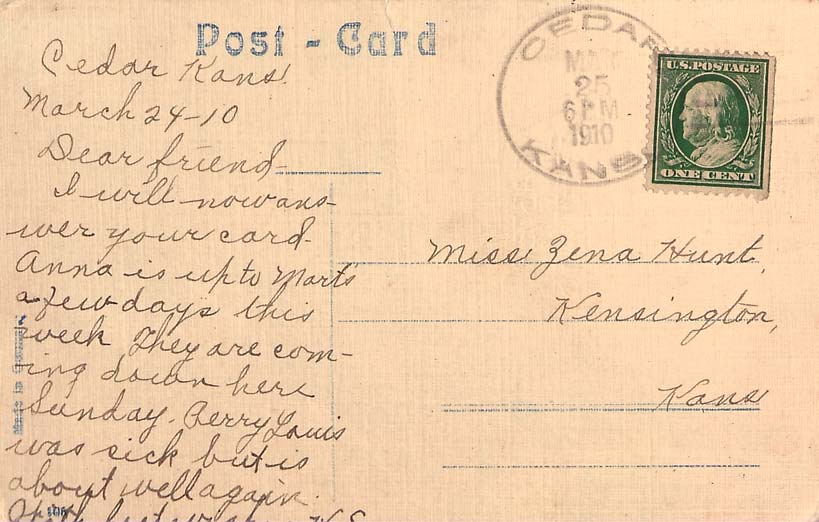 Post - Card
Cedar Kans.
March 24-10
Dear friend-
I will now ans-
wer your card.
Anna is up to Mart's
a few days this
week They are com-
ing down here
Sunday. Perry Louis
was sick but is
about well again.
CEDAR
25
6 PM
1910
KANS
U.S. POSTAGE
ONE CENT
Miss Zena Hunt,
Kensington,
Kans
Made in Germany